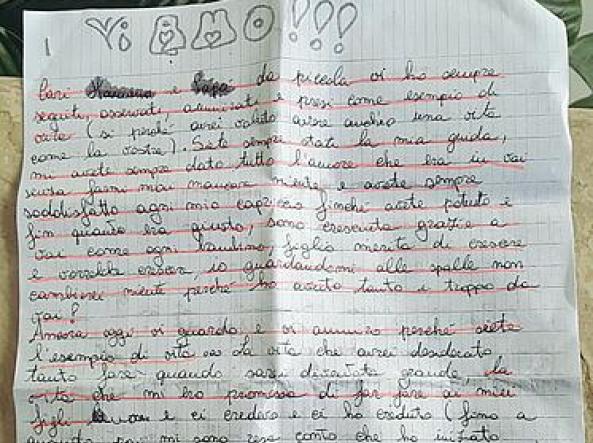 1 Vi AMO!!!
Cari Mamma e Papà da piccola vi ho sempre
seguiti, osservati, ammirati e presi come esempio di
vita (si perché avrei voluto avere anch'io una vita
come la vostra). Siete sempre stati la mia guida,
mi avete sempre dato tutto l'amore che era in voi
senza farmi mai mancare niente, e avete sempre
soddisfatto ogni mio capriccio finché avete potuto e
fin quando era giusto, sono cresciuta grazie a
voi come ogni bambino/figlio merita di crescere
e vorrebbe crescer, io guardandomi alle spalle non
cambierei niente perché ho avuto tanto e troppo da
voi!
Ancora oggi vi guardo e vi ammiro perché siete
l'esempio di vita La vita che avrei desiderato
tanto fare quando sarei diventata grande, la
vita che mi ero promessa di far fare ai miei
figli e ci credevo e ci ho creduto (fino a
poi mi sono resa conto che ho iniziato